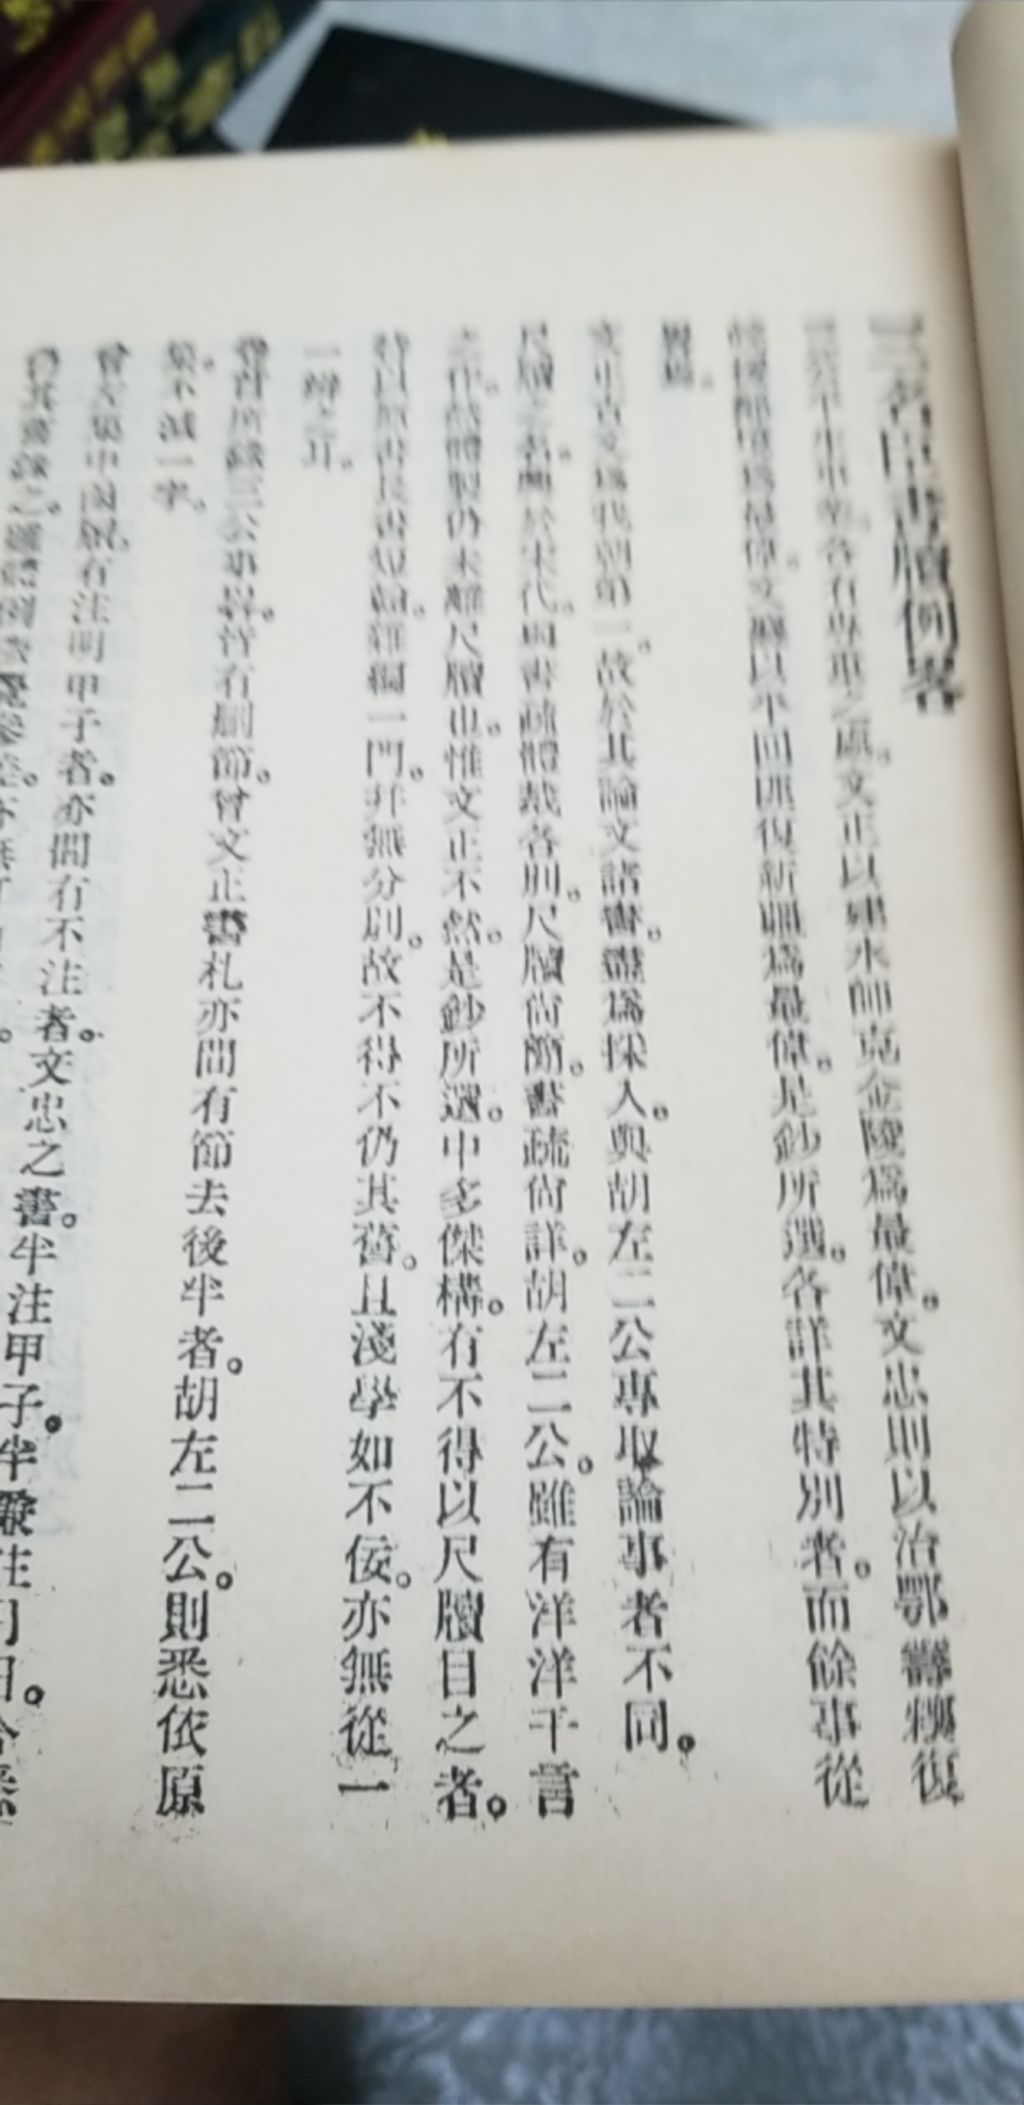 三名臣書牘例畧
三公平生事業。各有專重之處。文正以建水師克金陵爲最偉。文忠則以治鄂籌糧復
爲最偉。文襄以平回匪復新疆爲最偉。是鈔所選。各詳其特別者。而餘事從
畧焉。
文正古文爲我朝第一。故於其論文諸書。盡爲採入。與胡左二公專取論事者不同。
尺牘之名興於宋代。與書疏體裁各別。尺牘尙簡。書疏尙詳。胡左二公。雖有洋洋千言
之作。然體製仍未離尺牘也。惟文正不然。是鈔所選。中多傑構。有不得以尺牘目之者。
長書短篇。雜編一門。幷無分別。故不得不仍其舊。且淺學如不佞。亦無從一
一辨之耳。
所錄三公事畧。皆有刪節。曾文正書札亦間有節去後半者。胡左二公。則悉依原
不減一字。
有注明甲子者。亦間有不注者。文忠之書。半注甲子。半